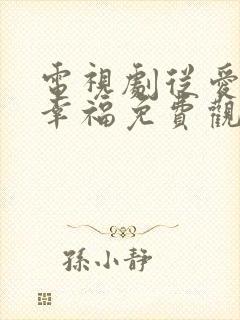 電視劇從愛
幸福免費觀
孫小靜